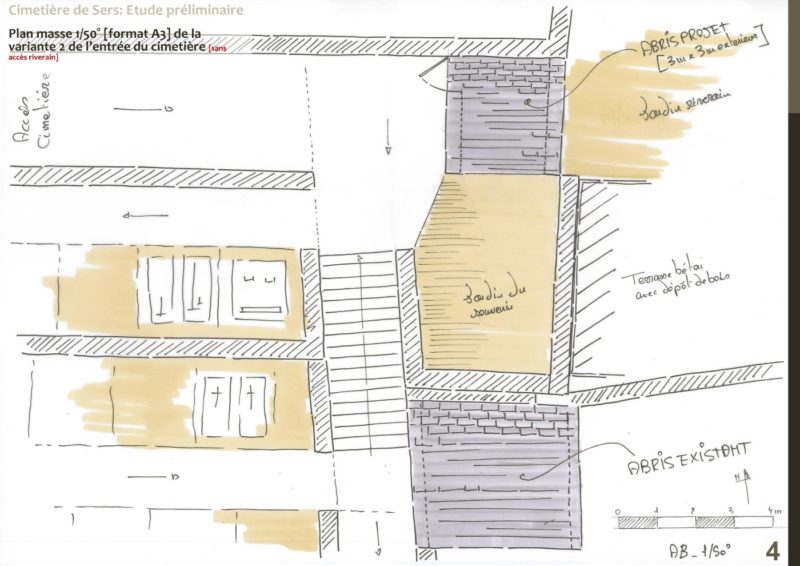 Cimetière de Sers: Etude préliminaire
Plan masse 1/50° [format A3] de la
variante 2 de l'entrée du cimetière [sans
accès riverain]
Accès
Cimetière
ABRIS PROJET
[3m x 3m exterieur]
Jardin riverain
Jardin du
souvenir
Terrasse béton
avec dépôt de bois
ABRIS EXISTANT
N
0 1 2 3 4m
AB_1/50°
4